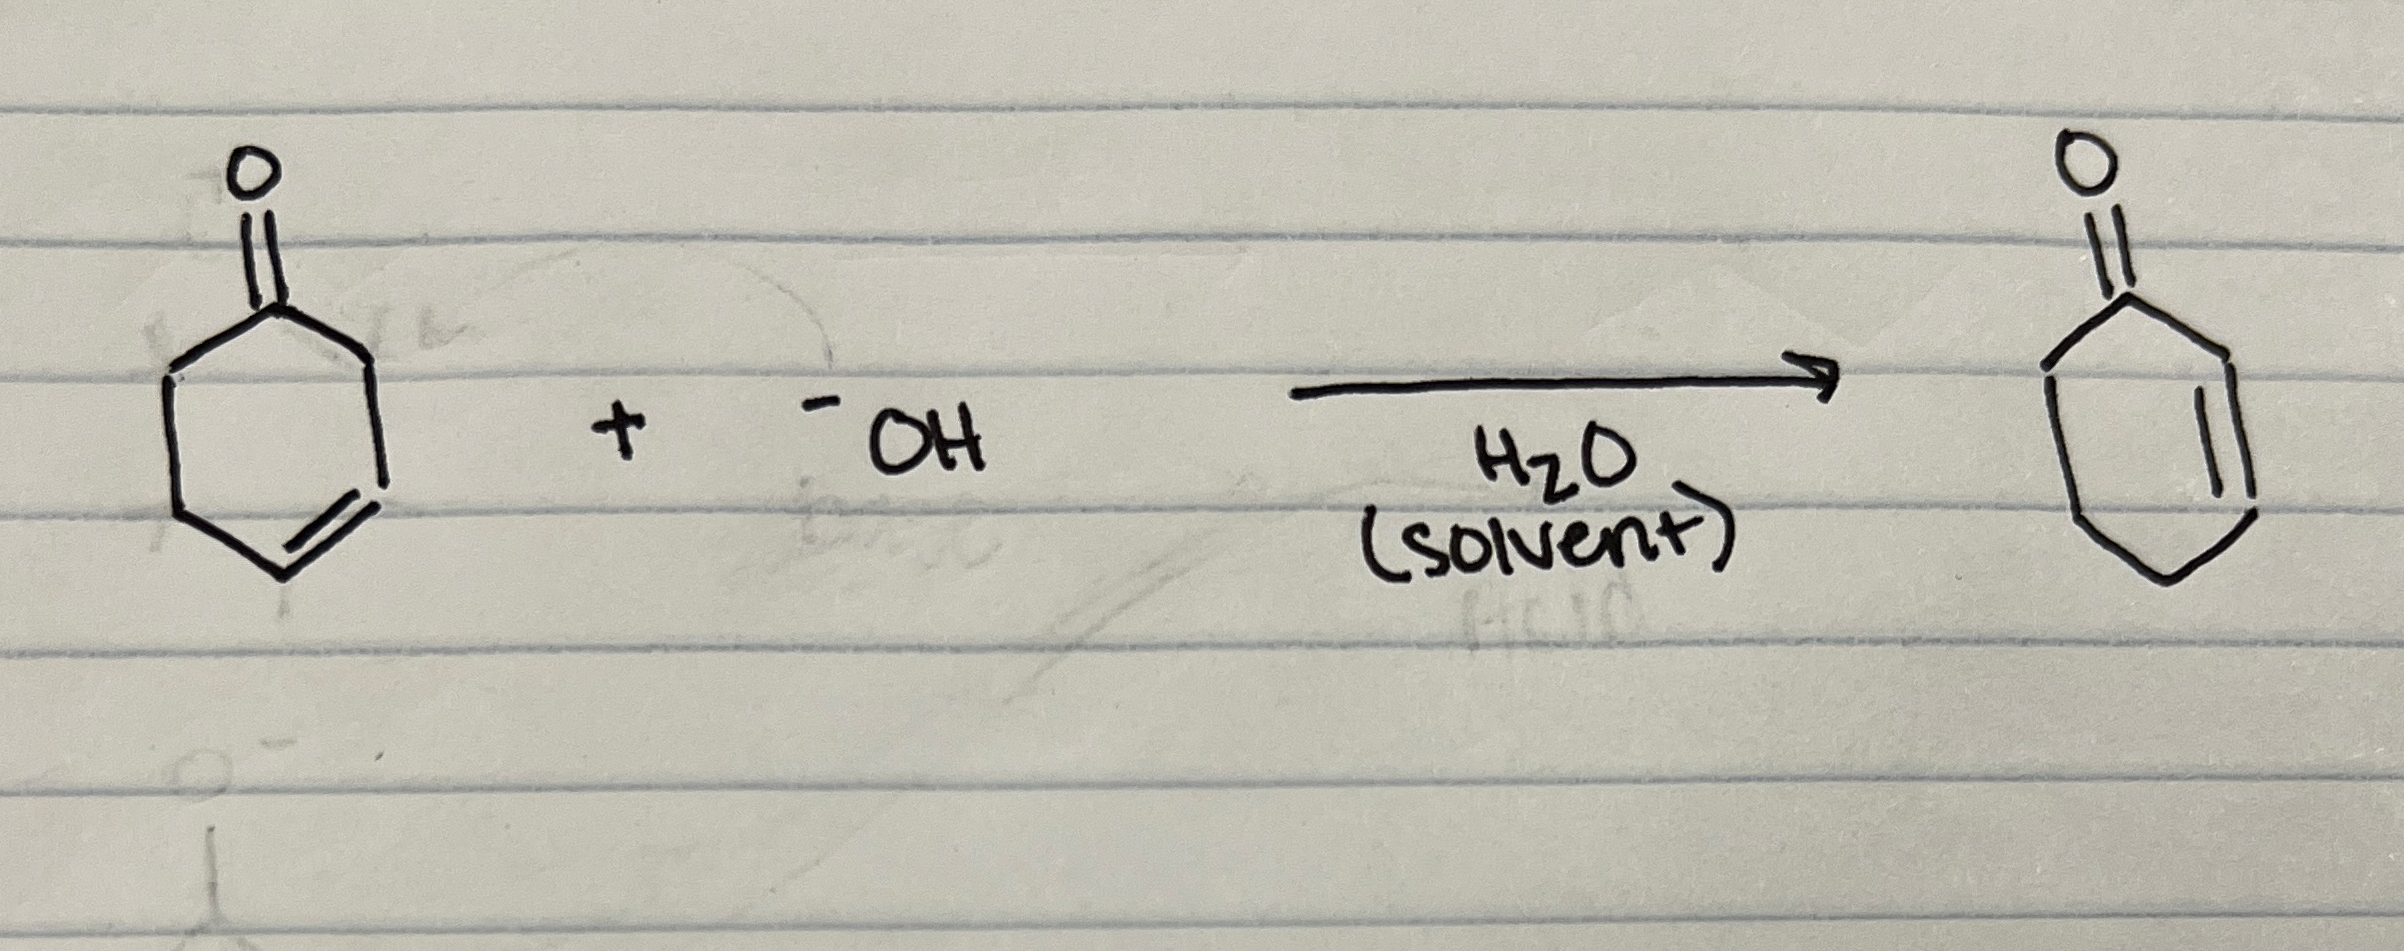 O O
+ ⁻OH H₂O
(solvent)